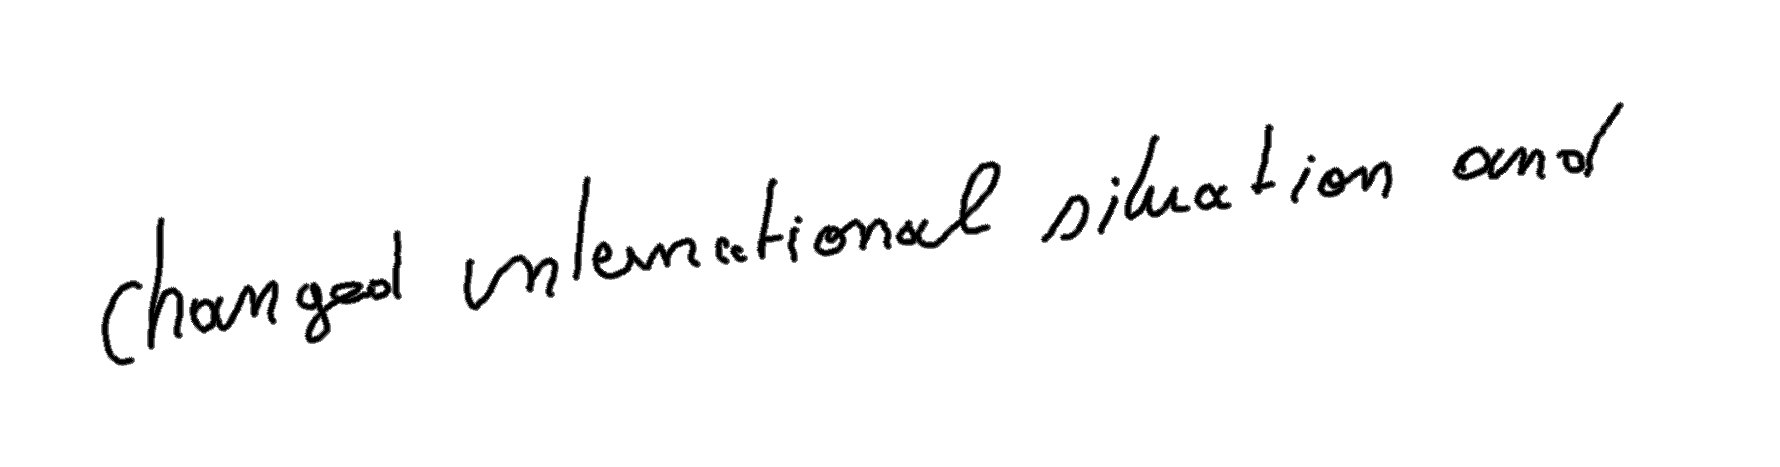 changed international situation and